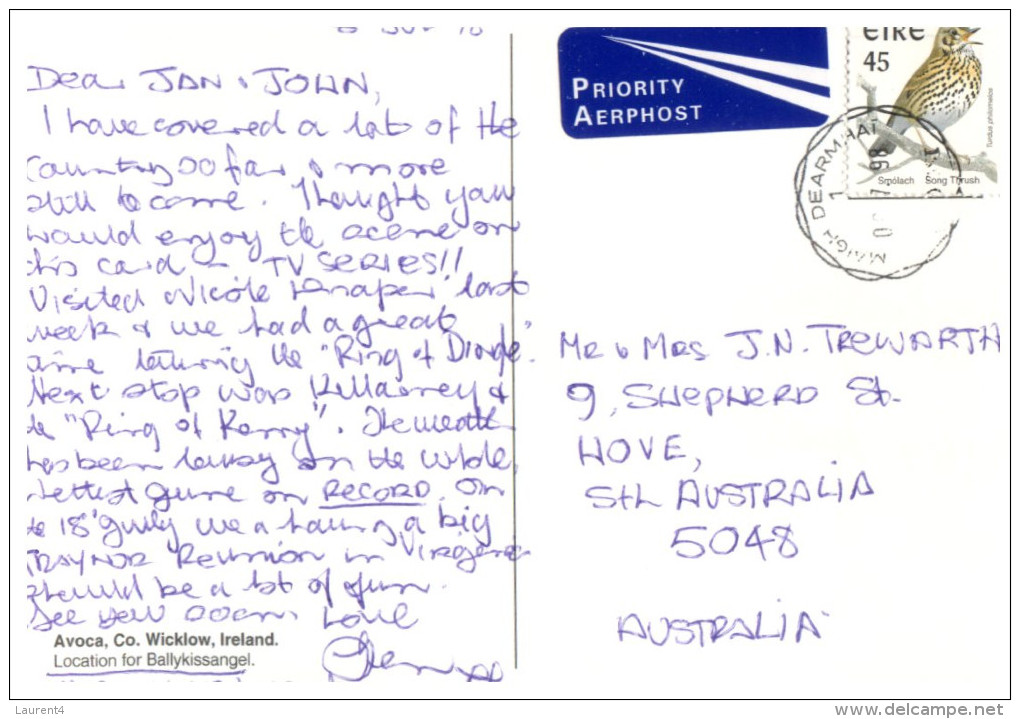 Dear JAN & JOHN,
I have covered a lot of the
country so far & more
still to come. Thought you
would enjoy the scene on
this card – TV SERIES!!
Visited Nicole last
week & we had a great
time touring the "Ring of Dingle".
Next stop was Killarney &
the "Ring of Kerry". The weather
has been lousy on the whole,
wettest June on RECORD. On
the 18th July we a having a big
TRAYNOR REUNION in Virginia
should be a lot of fun.
See you soon. Love
Avoca, Co. Wicklow, Ireland.
Location for Ballykissangel.
PRIORITY
AERPHOST
EIRE
45
Turdus philomelos
Smólach Song Thrush
MAIGH DEARMHAI
MR & MRS J.N. TREWARTH
9, SHEPHERD St.
HOVE,
Sth AUSTRALIA
5048
AUSTRALIA
Laurent4
delcampe.net